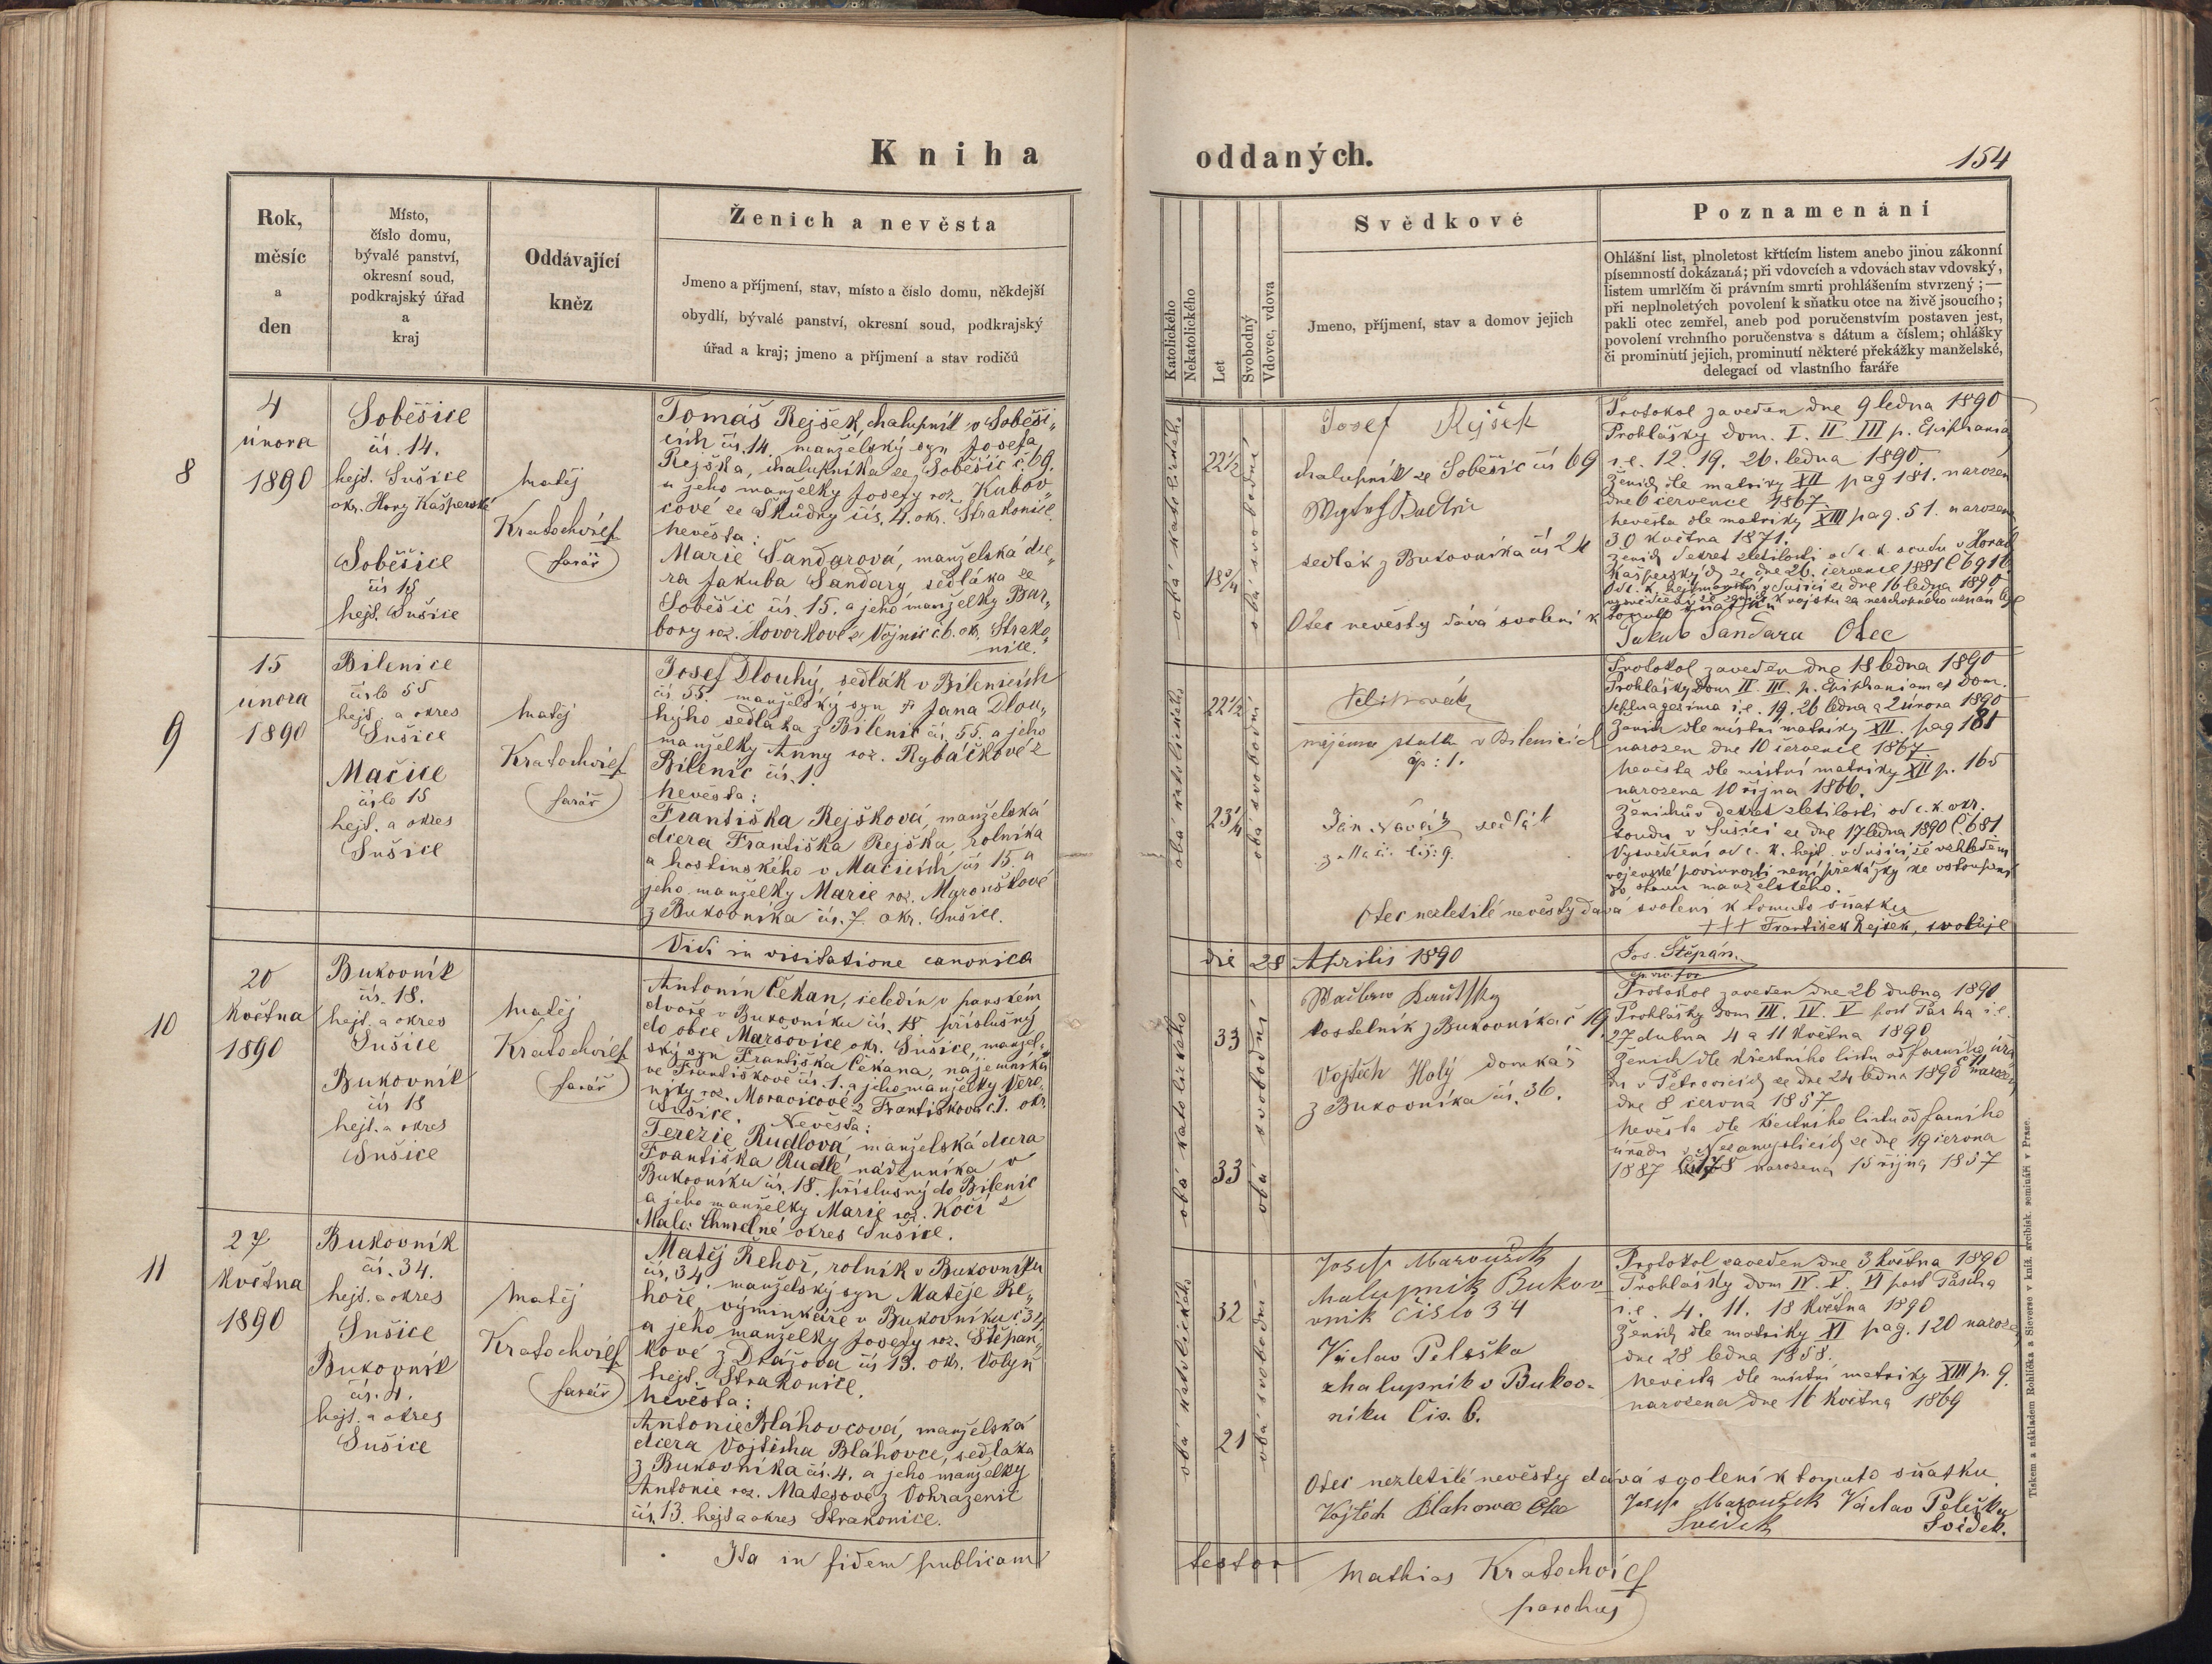 Kniha
oddaných.
154
Rok,
měsíc
a
den
Místo,
číslo domu,
bývalé panství,
okresní soud,
podkrajský úřad
a
kraj
Oddávající
kněz
Ženich a nevěsta
Jmeno a příjmení, stav, místo a číslo domu, někdejší
obydlí, bývalé panství, okresní soud, podkrajský
úřad a kraj; jmeno a příjmení a stav rodičů
Katolického
Nekatolického
Let
Svobodný
Vdovec, vdova
Svědkové
Jmeno, příjmení, stav a domov jejich
Poznamenání
Ohlášní list, plnoletost křtícím listem anebo jinou zákonní
písemností dokázaná; při vdovcích a vdovách stav vdovský,
listem umrlčím či právním smrti prohlášením stvrzený; —
při neplnoletých povolení k sňatku otce na živě jsoucího;
pakli otec zemřel, aneb pod poručenstvím postaven jest,
povolení vrchního poručenstva s dátum a číslem; ohlášky
či prominutí jejich, prominutí některé překážky manželské,
delegací od vlastního faráře
8
4
února
1890
Soběšice
čís. 14.
hejt. Sušice
okr. Hory Kašperské
Soběšice
čís 15
hejt. Sušice
Matěj
Kratochvíl
farář
Tomáš Rejšek, chalupník v Soběši„
cích čís. 14. manželský syn Josefa
Rejška, chalupníka ze Soběšic č. 69.
a jeho manželky Josefy roz. Kubov„
cové ze Škůdry čís. 4. okr. Strakonice.
Nevěsta:
Marie Šandarová, manželská dce„
ra Jakuba Šandary, sedláka ze
Soběšic čís. 15. a jeho manželky Bar„
bory roz. Hovorkové z Vojnic č. 6. okr. Strako„
nice.
obá katolického
22½
18¾
obá svobodní
Josef Rejšek
chalupník ze Soběšic čís 69
sedlák z Bukovníka čís 24
Otec nevěsty dává svolení k
tomuto sňatku
Jakub Šandara Otec
Protokol zaveden dne 9 ledna 1890
Prohlášky dom. I. II. III p. Epiphania
i.e. 12. 19. 26. ledna 1890.
Ženich dle matriky XII pag 181. narozen
dne 6 července 1867.
Nevěsta dle matriky XIII pag. 51. narozena
30 května 1871.
9
15
února
1890
Bilenice
číslo 55
hejt. a okres
Sušice
Mačice
číslo 15
hejt. a okres
Sušice
Matěj
Kratochvíl
farář
Josef Dlouhý, sedlák v Bilenicích
čís 55. manželský syn Jana Dlou„
hýho sedláka z Bilenic čís. 55. a jeho
manželky Anny roz. Rybáčkové z
Bilenic čís. 1.
Nevěsta:
Františka Rejšková, manželská
dcera Františka Rejška, rolníka
a hostinského v Mačicích čís 15. a
jeho manželky Marie roz. Marouškové
z Bukovníka čís. 7. okr. Sušice.
obá katolického
22½
23¼
obá svobodní
nájemce statku v Bilenicích
čp: 1.
Jan Novák sedlák
Protokol zaveden dne 18 ledna 1890
Prohlášky Dom II. III. p. Epiphaniam et Dom.
septuagesima i.e. 19. 26 ledna a 2 února 1890
Ženich dle místní matriky XII. pag 181
narozen dne 10 července 1867
Nevěsta dle místní matriky XII p. 165
narozena 10 října 1866.
Ženichův dekret zletilosti od c. k. okr.
soudu v Sušici ze dne 17 ledna 1890 č. 681
Vysvědčení od c. k. hejt. v Sušici, že vzhledem
vojenské povinnosti není překážky ke vstoupení
do stavu manželského.
Otec nezletilé nevěsty dává svolení k tomuto sňatku
+++ František Rejšek, svoluje
Vidi in visitatione canonica
die 28 Aprilis 1890
Jos. Štěpán.
10
20
Května
1890
Bukovník
čís. 18.
hejt. a okres
Sušice
Bukovník
čís 18
hejt. a okres
Sušice
Matěj
Kratochvíl
farář
Antonín Čekan, čeledín v panském
dvoře v Bukovníku čís. 18 příslušný
do obce Maršovice okr. Sušice, manžel„
ský syn Františka Čekana, nájemníka
ve Františkově čís. 1. a jeho manželky Vero„
niky roz. Moravcové z Františkova č. 1. okr.
Sušice. Nevěsta:
Terezie Rudlová manželská dcera
Františka Rudle, nádenníka v
Bukovníku čís. 18. příslušný do Bilenic
a jeho manželky Marie roz. Kočí z
Malé Chmelné okres Sušice.
obá katolického
33
33
obá svobodní
kostelník z Bukovníka č 19
Vojtěch Holý domkář
z Bukovníka čís. 36.
Protokol zaveden dne 26 dubna 1890
Prohlášky Dom III. IV. V post Pascha i.e.
27 dubna 4 a 11 Května 1890
Ženich dle křestního listu od farního úřa
du v Petrovicích ze dne 24 ledna 1890 narozen
dne 8 června 1857
Nevěsta dle křestního listu od farního
úřadu v Nezamyslicích ze dne 19 června
1887 narozena 15 října 1857
11
27
Května
1890
Bukovník
čís. 34.
hejt. a okres
Sušice
Bukovník
čís. 4.
hejt. a okres
Sušice
Matěj
Kratochvíl
farář
Matěj Řehoř, rolník v Bukovníku
čís. 34 manželský syn Matěje Ře„
hoře, výminkáře v Bukovníku č. 34
a jeho manželky Josefy roz. Štěpán„
kové z Drážova čís 13. okr. Volyň
hejt. Strakonice.
Nevěsta:
Antonie Bláhovcová, manželská
dcera Vojtěcha Bláhovce, sedláka
z Bukovníka čís. 4. a jeho manželky
Antonie roz. Matesové z Vohrazenic
čís. 13. hejt a okres Strakonice.
obá katolického
32
21
obá svobodní
Josef Maroušek
chalupník Bukov
vnik číslo 34
Václav Peleška
chalupník v Bukov-
níku čís. 6.
Protokol zaveden dne 3 května 1890
Prohlášky dom IV. V. VI post Pascha
i.e. 4. 11. 18 Května 1890
Ženich dle matriky XI pag. 120 narozen
dne 28 ledna 1858.
Nevěsta dle místní matriky XIII p. 9.
narozena dne 16 Května 1869
Otec nezletilé nevěsty dává svolení k tomuto sňatku.
Vojtěch Blahovec Otec
Josef Maroušek Václav Peleška
Svědek Svědek.
Ita in fidem publicam
testor Mathias Kratochvíl
parochus
Tiskem a nákladem Rohlíčka a Sieverse v kníž. arcibisk. semináři v Praze.